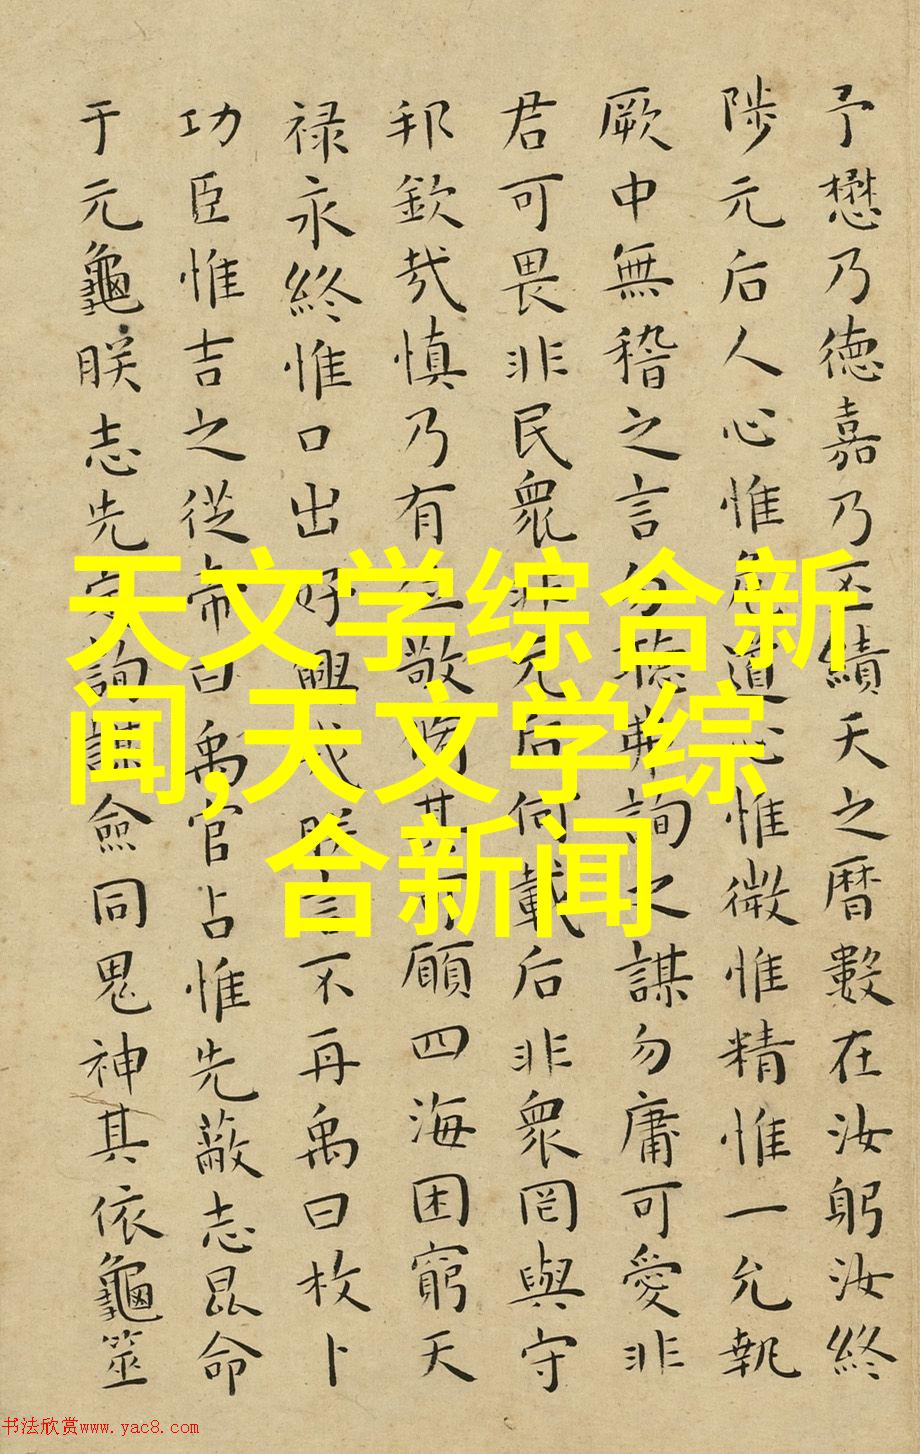 予懋乃德嘉乃丕績天之曆數在汝躬汝終
陟元后人心惟危道心惟微惟精惟一允執
厥中無稽之言勿聽弗詢之謀勿庸可愛非
君可畏非民衆非元后何載后非衆罔與守
邦欽哉慎乃有位敬脩其可願四海困窮天
禄永終惟口出好興戎朕言不再禹曰枚卜
功臣惟吉之從帝曰禹官占惟先蔽志昆命
于元龜朕志先定詢謀僉同鬼神其依龜筮
天文学综合新
闻,天文学综
合新闻
书法欣赏www.yac8.com